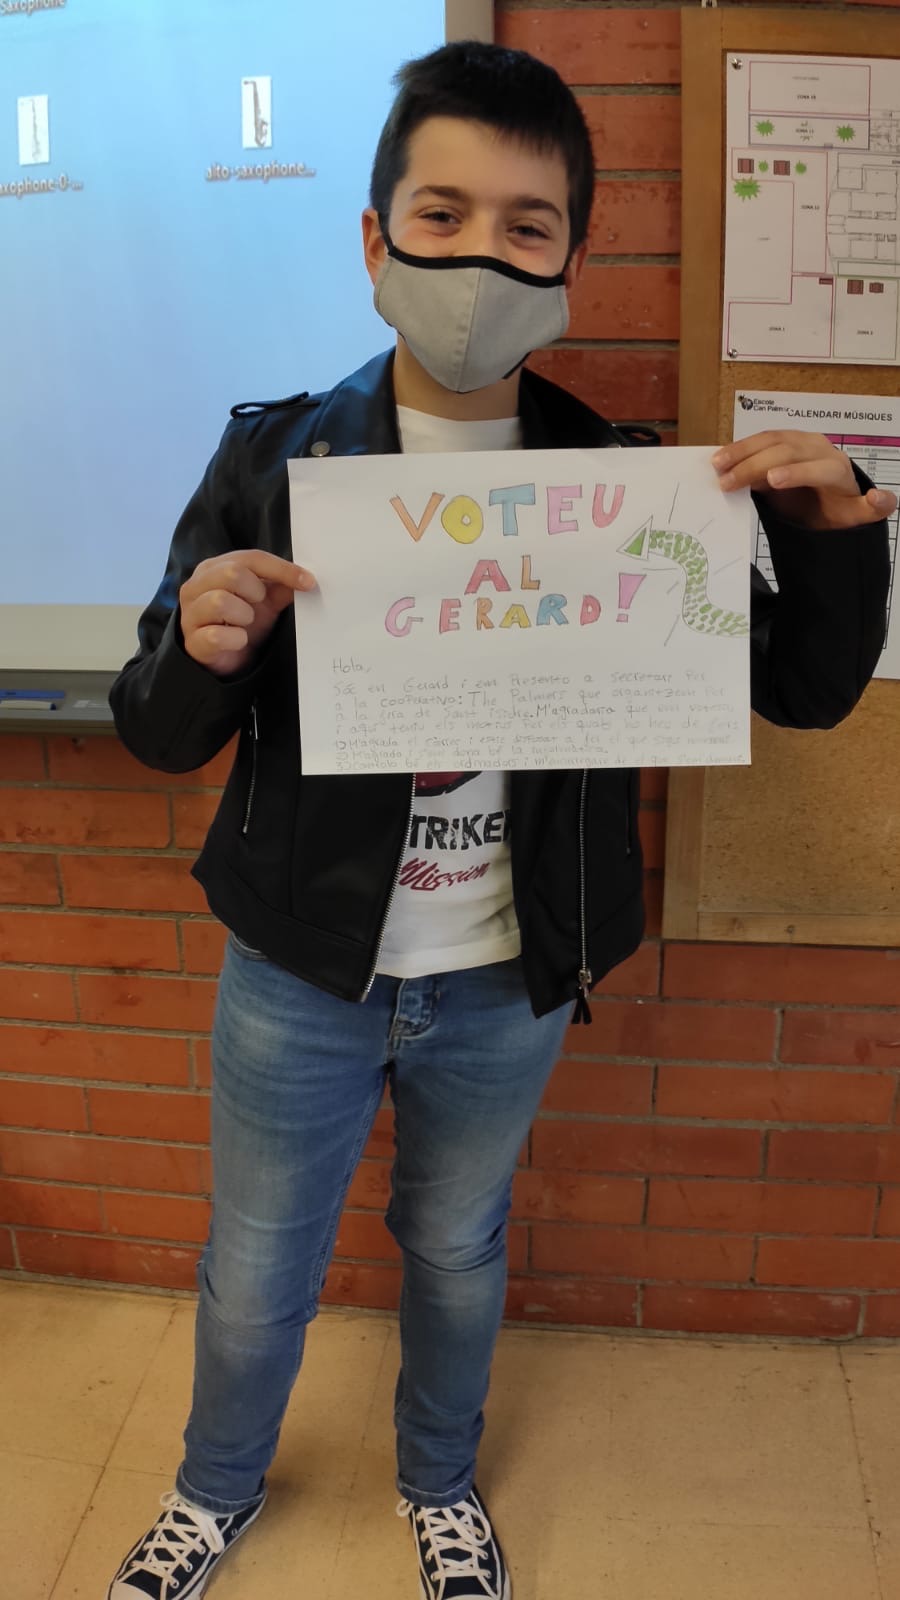 saxophone
axophone-0-...
alto-saxophone...
ZONA 11
ZONA 12
ZONA 1
ZONA 2
Escola
Can Palmer
CALENDARI MÚSIQUES
VOTEU
AL
GERARD!
Hola,
Sóc en Gerard i em Presento a secretari Per
a la cooperativa: The Palmers que organitzem Per
a la fira de Sant Isidre. M'agradaria que em votessiu
i aquí teniu els motius Per els quals ho heu de fer:
1) M'agrada el càrrec i estic disposat a fer el que sigui necessari.
2) M'agrada i se'm dona bé la informàtica.
3) Controlo bé els ordinadors i m'encarregaré de el que s'em demani.
TRIKE
Mission